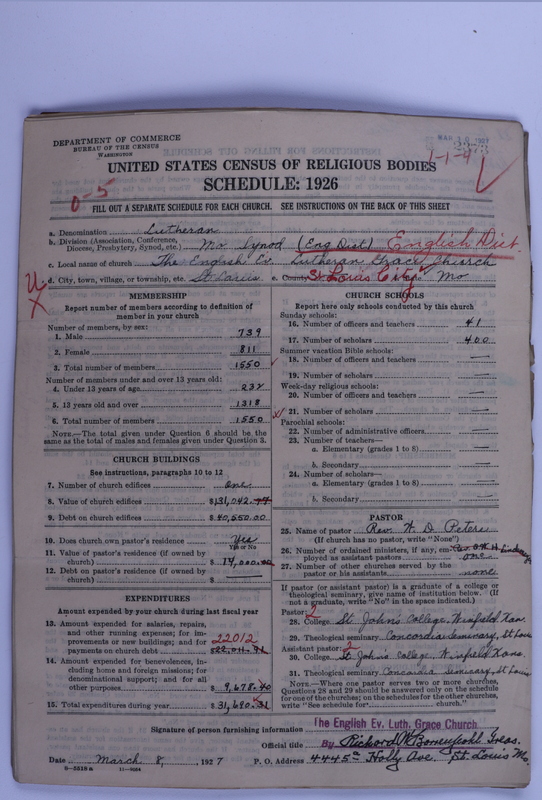 DEPARTMENT OF COMMERCE
BUREAU OF THE CENSUS
WASHINGTON
MAR 10 1927
2373
1-1-4
UNITED STATES CENSUS OF RELIGIOUS BODIES
SCHEDULE: 1926
0-5
FILL OUT A SEPARATE SCHEDULE FOR EACH CHURCH. SEE INSTRUCTIONS ON THE BACK OF THIS SHEET
a. Denomination Lutheran
b. Division (Association, Conference, Diocese, Presbytery, Synod, etc.) Mo Synod (Eng Dist) English Dist.
c. Local name of church The English Ev. Lutheran Grace Church
d. City, town, village, or township, etc. St Louis e. County St Louis City Mo
MEMBERSHIP
Report number of members according to definition of
member in your church
Number of members, by sex:
1. Male 739
2. Female 811
3. Total number of members 1550
Number of members under and over 13 years old:
4. Under 13 years of age 232
5. 13 years old and over 1318
6. Total number of members 1550
NOTE.—The total given under Question 6 should be the
same as the total of males and females given under Question 3.
CHURCH BUILDINGS
See instructions, paragraphs 10 to 12
7. Number of church edifices One
8. Value of church edifices $131,042.
9. Debt on church edifices $40,550.00
10. Does church own pastor's residence? Yes
Yes or No
11. Value of pastor's residence (if owned by
church) $14,000.00
12. Debt on pastor's residence (if owned by
church) $
EXPENDITURES
Amount expended by your church during last fiscal year
13. Amount expended for salaries, repairs,
and other running expenses; for im-
provements or new buildings; and for
payments on church debt 22012 $22,011.91
14. Amount expended for benevolences, in-
cluding home and foreign missions; for
denominational support; and for all
other purposes $9,678.40
15. Total expenditures during year $31,690.31
CHURCH SCHOOLS
Report here only schools conducted by this church
Sunday schools:
16. Number of officers and teachers 41
17. Number of scholars 400
Summer vacation Bible schools:
18. Number of officers and teachers —
19. Number of scholars —
Week-day religious schools:
20. Number of officers and teachers —
21. Number of scholars —
Parochial schools:
22. Number of administrative officers —
23. Number of teachers—
a. Elementary (grades 1 to 8) —
b. Secondary —
24. Number of scholars—
a. Elementary (grades 1 to 8) —
b. Secondary —
PASTOR
25. Name of pastor Rev. H. D. Peters
(If church has no pastor, write "None")
26. Number of ordained ministers, if any, em-
ployed as assistant pastors one
27. Number of other churches served by the
pastor or his assistants none
If pastor (or assistant pastor) is a graduate of college or
theological seminary, give name of institution below. (If
not a graduate, write "No" in the space indicated.)
Pastor:
28. College St John's College, Winfield Kan.
29. Theological seminary Concordia Seminary, St Louis
Assistant pastor:
30. College St John's College, Winfield Kans.
31. Theological seminary Concordia Seminary, St Louis
NOTE.—Where one pastor serves two or more churches,
Questions 28 and 29 should be answered only on the schedule
for one of the churches; on the schedules for the other churches,
write "See schedule for church."
Signature of person furnishing information The English Ev. Luth. Grace Church
Official title By Richard W. Treas.
Date March 8, 1927 P. O. Address 4445a Holly Ave. St. Louis Mo.